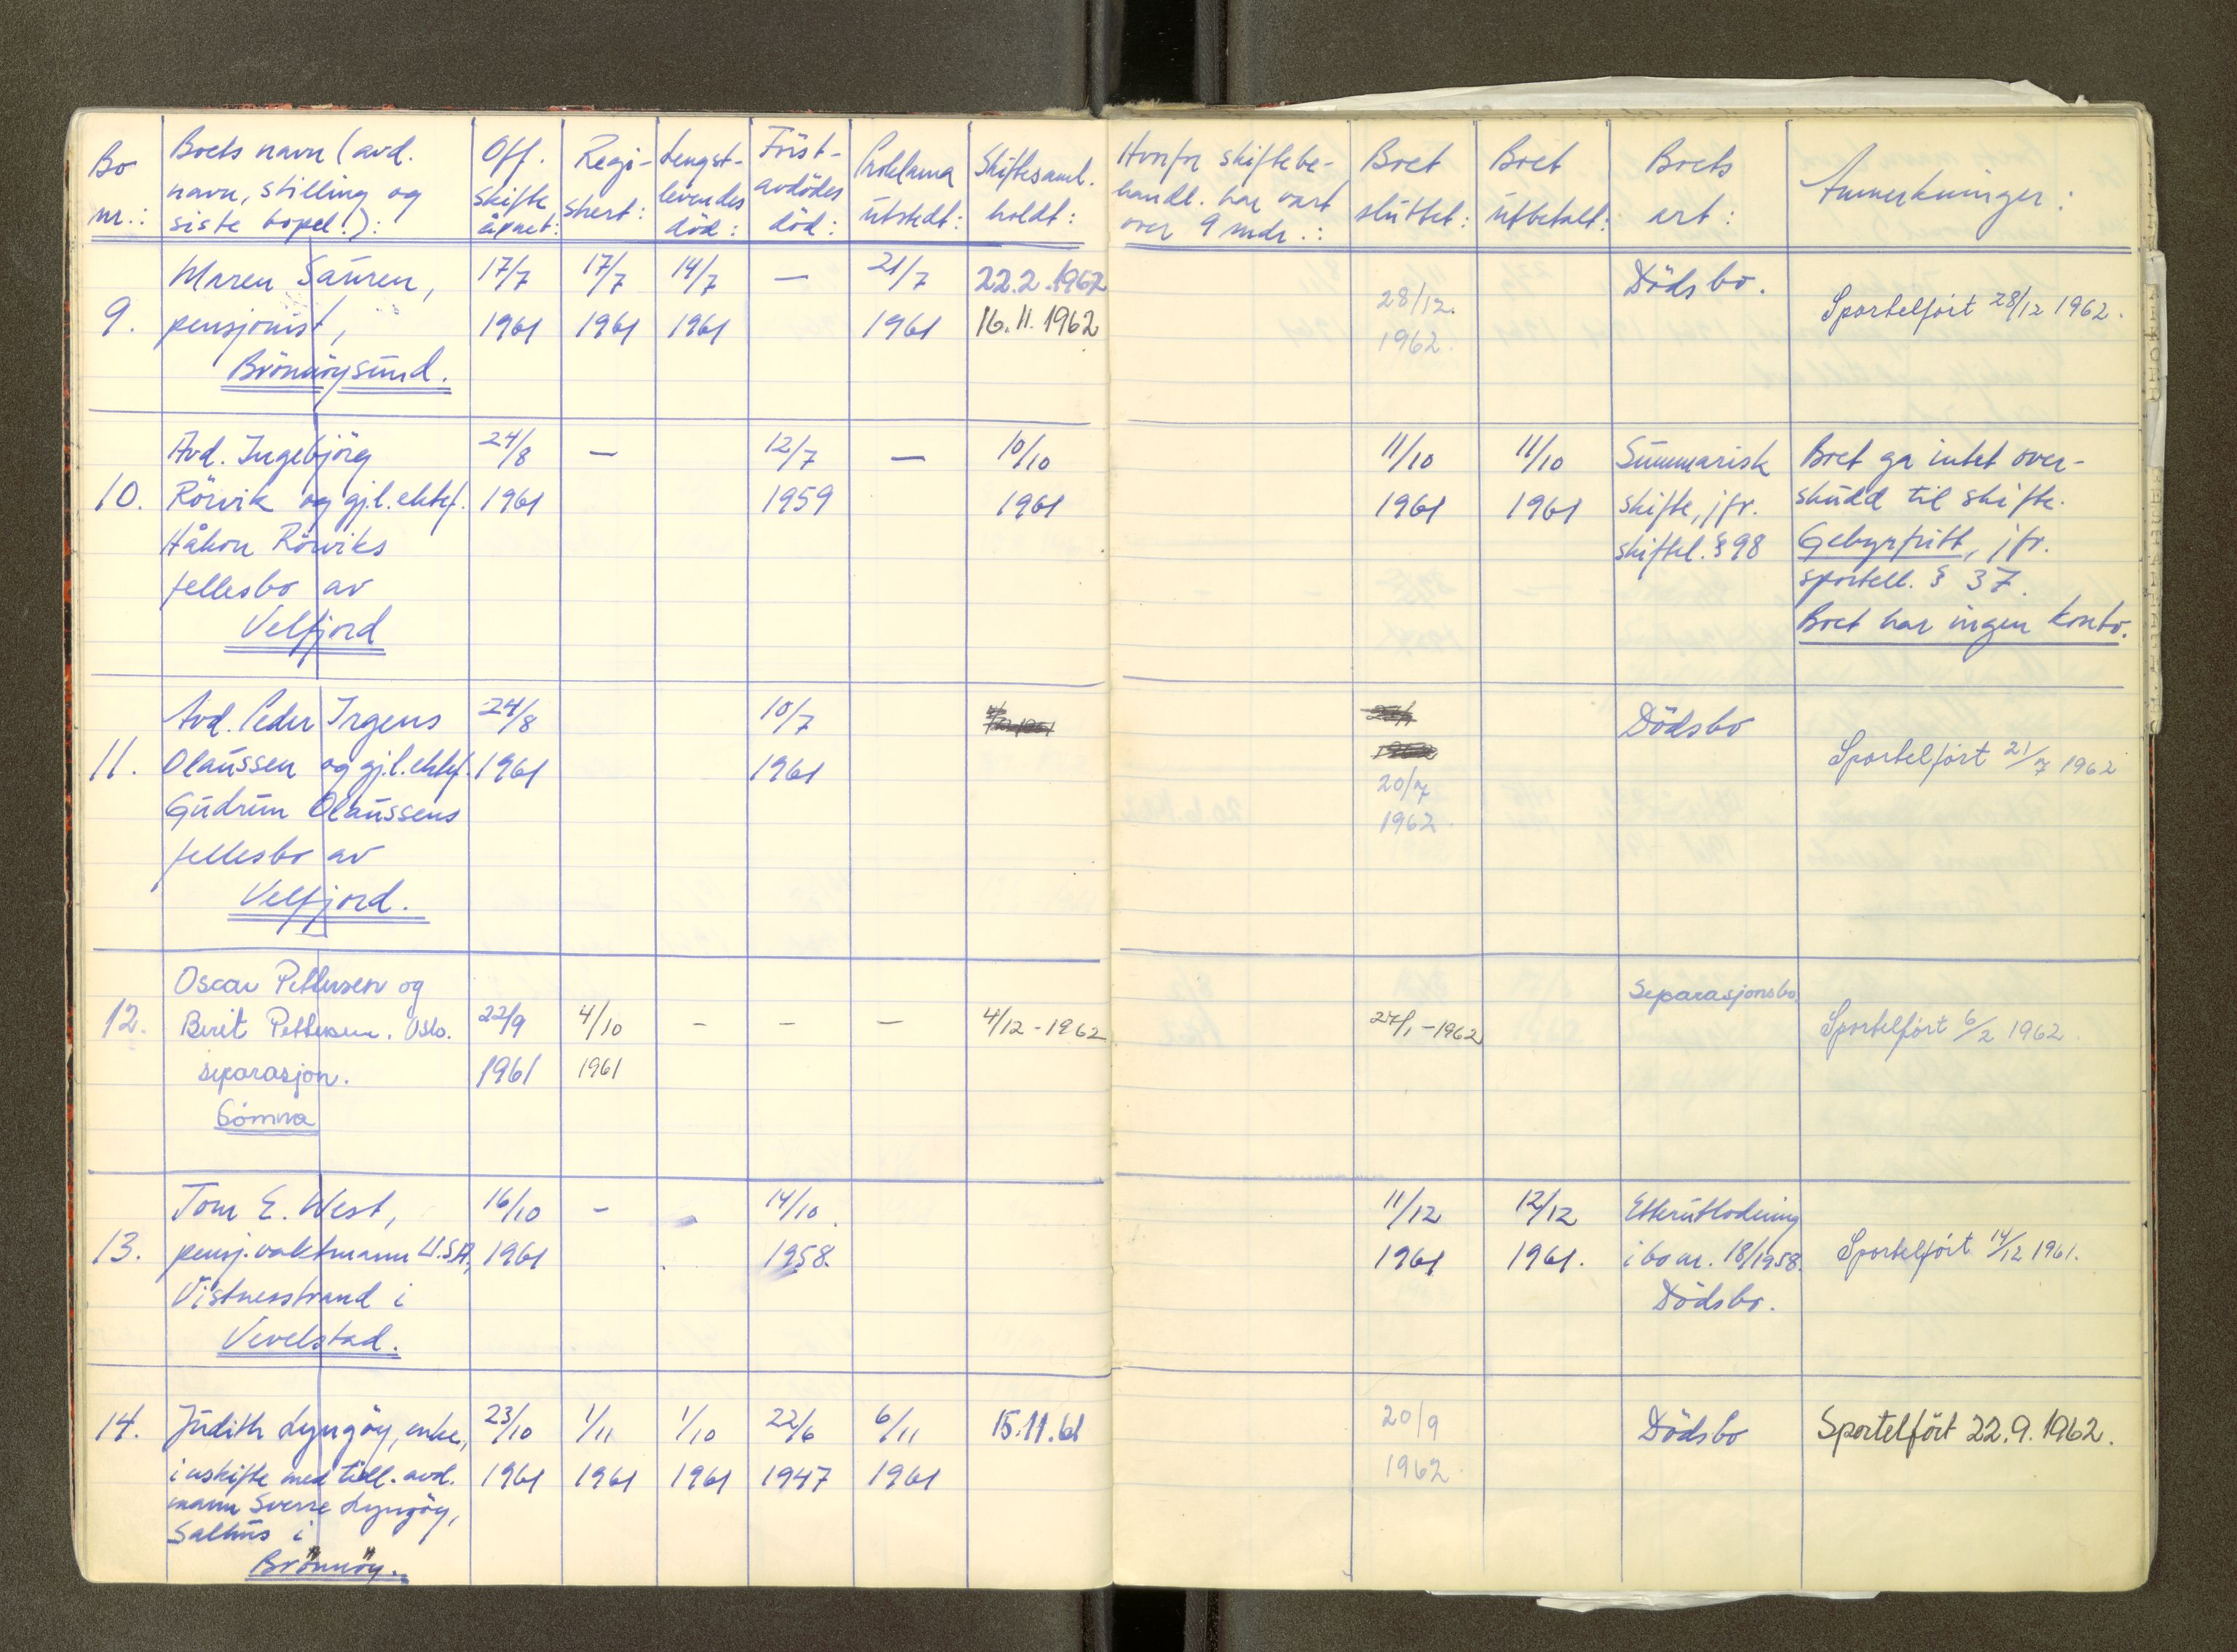 Bo nr.: Boets navn (avd. navn, stilling og siste bopel.): Off. skifte åpnet: Regi- strert: Lengst- levendes död: Först- avdödes död: Proklama utstedt: Skiftesaml. holdt: Hvorfor skiftebe- handl. har vart over 9 mdr.: Boet sluttet: Boet utbetalt: Boets art: Anmerkninger:
Maren Sauren, 17/7 17/7 14/7 — 21/7 22.2.1962 28/12. Dödsbo. Sportelfört 28/12 1962.
9. pensjonist, 1961 1961 1961 1961 16.11.1962 1962.
Brönnöysund.
Avd. Ingebjörg 24/8 — 12/7 — 10/10 11/10 11/10 Summarisk Boet ga intet over-
10. Rörvik og gj.l. ektef. 1961 1959 1961 1961 1961 skifte, jfr. skudd til skifte.
Håkon Rörviks skiftel. § 98 Gebyrfritt, jfr.
fellesbo av sportell. § 37.
Velfjord Boet har ingen konto.
Avd. Peder Irgens 24/8 10/7 Dödsbo
11. Olaussen og gj.l. ektef. 1961 1961 Sportelfört 21/7 1962
Gudrun Olaussens 20/7 1962.
fellesbo av
Velfjord.
Oscar Pettersen og Separasjonsbo.
12. Berit Pettersen. Oslo. 22/9 4/10 - - — 4/12 - 1962 27/1 - 1962 Sportelfört 6/2 1962.
separasjon. 1961 1961
Sömna
Tom E. West, 16/10 - 14/10. 11/12 12/12 Etterutlodning
13. pensj. vaktmann U.S.A., 1961 1958. 1961 1961. i bo nr. 18/1958. Sportelfört 14/12 1961.
Vistnesstrand i Dödsbo.
Vevelstad.
14. Judith Lyngöy, enke, 23/10 1/11 1/10 22/6 6/11 15.11.61 20/9 Dödsbo Sportelfört 22.9.1962.
i uskifte med tidl. avd. 1961 1961 1961 1947 1961 1962.
mann Sverre Lyngöy,
Salhus i
Brönnöy.